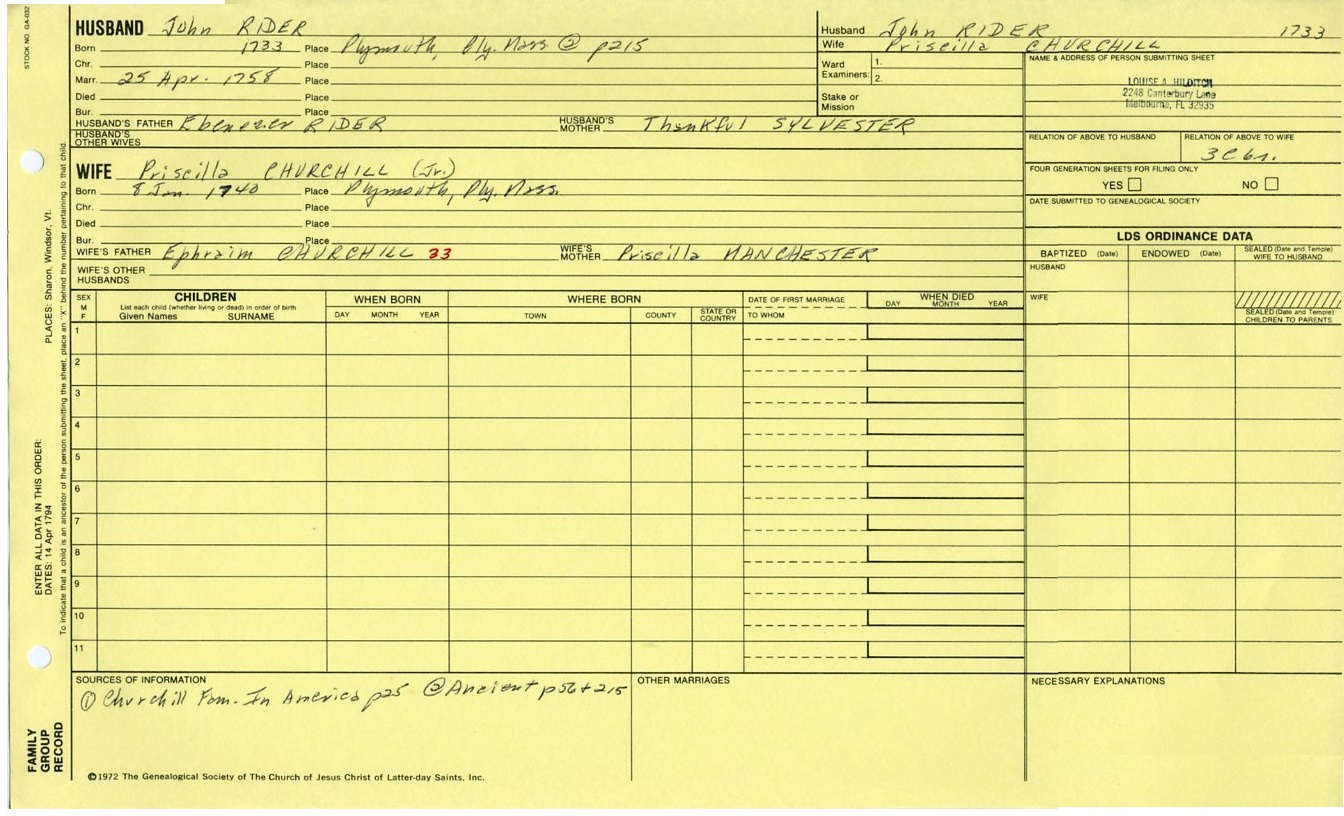 STOCK NO. GA-032
HUSBAND John RIDER
Born 1733 Place Plymouth, Ply. Mass ② p215
Chr. Place
Marr. 25 Apr. 1758 Place
Died Place
Bur. Place
HUSBAND'S FATHER Ebenezer RIDER HUSBAND'S MOTHER Thankful SYLVESTER
HUSBAND'S OTHER WIVES
WIFE Priscilla CHURCHILL (Jr.)
Born 8 Jan. 1740 Place Plymouth, Ply. Mass.
Chr. Place
Died Place
Bur. Place
WIFE'S FATHER Ephraim CHURCHILL 33 WIFE'S MOTHER Priscilla MANCHESTER
WIFE'S OTHER HUSBANDS
Husband John RIDER 1733
Wife Priscilla CHURCHILL
Ward Examiners: 1.
2.
Stake or Mission
NAME & ADDRESS OF PERSON SUBMITTING SHEET
LOUISE A. HILDITCH
2248 Canterbury Lane
Melbourne, FL 32935
RELATION OF ABOVE TO HUSBAND RELATION OF ABOVE TO WIFE
FOUR GENERATION SHEETS FOR FILING ONLY
YES NO
DATE SUBMITTED TO GENEALOGICAL SOCIETY
LDS ORDINANCE DATA
BAPTIZED (Date) ENDOWED (Date) SEALED (Date and Temple) WIFE TO HUSBAND
HUSBAND
WIFE
SEALED (Date and Temple) CHILDREN TO PARENTS
SEX M F CHILDREN WHEN BORN WHERE BORN DATE OF FIRST MARRIAGE WHEN DIED
List each child (whether living or dead) in order of birth
Given Names SURNAME DAY MONTH YEAR TOWN COUNTY STATE OR COUNTRY TO WHOM DAY MONTH YEAR
1
2
3
4
5
6
7
8
9
10
11
SOURCES OF INFORMATION
① Churchill Fam. In America p25 ② Ancient p56+215
OTHER MARRIAGES
NECESSARY EXPLANATIONS
©1972 The Genealogical Society of The Church of Jesus Christ of Latter-day Saints, Inc.
FAMILY GROUP RECORD
ENTER ALL DATA IN THIS ORDER:
DATES: 14 Apr 1794 PLACES: Sharon, Windsor, Vt.
To indicate that a child is an ancestor of the person submitting the sheet, place an "X" behind the number pertaining to that child.